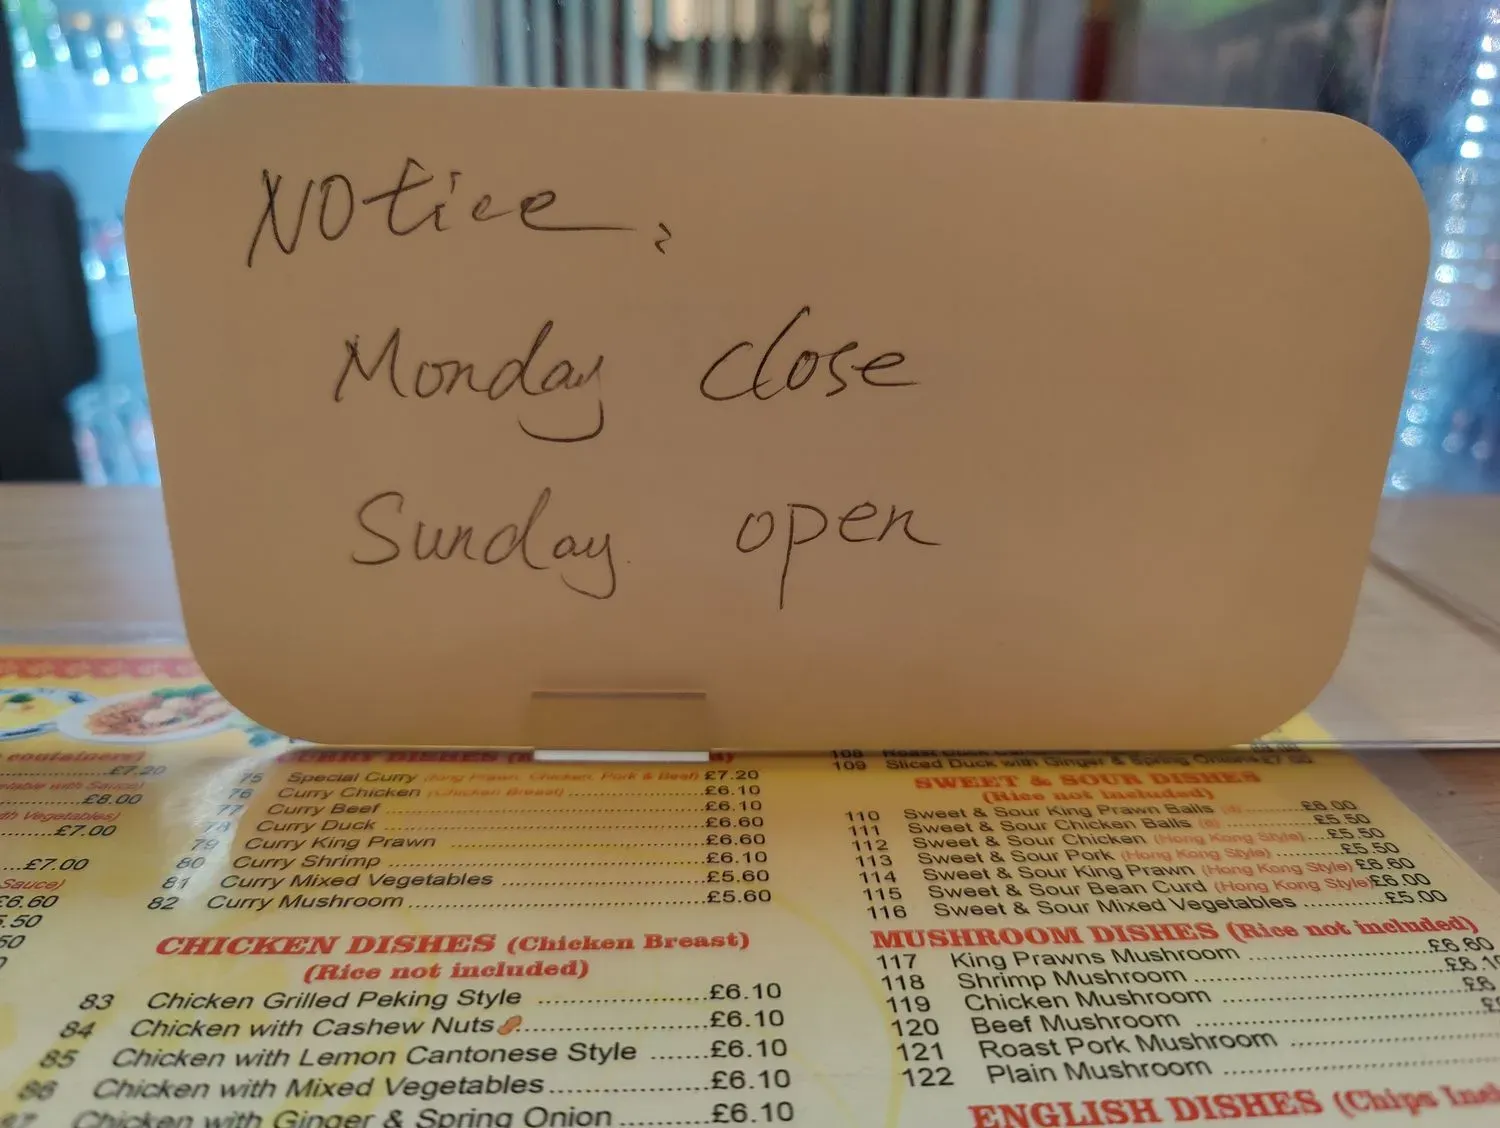 Notice:
Monday close
Sunday open
containers)
£7.20
£8.00
£7.00
£7.00
Sauce)
£6.60
CURRY DISHES
75 Special Curry (King Prawn, Chicken, Pork & Beef) £7.20
76 Curry Chicken (Chicken Breast) £6.10
77 Curry Beef £6.10
78 Curry Duck £6.60
79 Curry King Prawn £6.60
80 Curry Shrimp £6.10
81 Curry Mixed Vegetables £5.60
82 Curry Mushroom £5.60
CHICKEN DISHES (Chicken Breast)
(Rice not included)
83 Chicken Grilled Peking Style £6.10
84 Chicken with Cashew Nuts £6.10
85 Chicken with Lemon Cantonese Style £6.10
86 Chicken with Mixed Vegetables £6.10
87 Chicken with Ginger & Spring Onion £6.10
109 Sliced Duck with Ginger & Spring Onions
SWEET & SOUR DISHES
(Rice not included)
110 Sweet & Sour King Prawn Balls £6.00
111 Sweet & Sour Chicken Balls £5.50
112 Sweet & Sour Chicken (Hong Kong Style) £5.50
113 Sweet & Sour Pork (Hong Kong Style) £5.50
114 Sweet & Sour King Prawn (Hong Kong Style) £6.60
115 Sweet & Sour Bean Curd (Hong Kong Style) £6.00
116 Sweet & Sour Mixed Vegetables £5.00
MUSHROOM DISHES (Rice not included)
117 King Prawns Mushroom £6.60
118 Shrimp Mushroom
119 Chicken Mushroom
120 Beef Mushroom
121 Roast Pork Mushroom
122 Plain Mushroom
ENGLISH DISHES (Chips